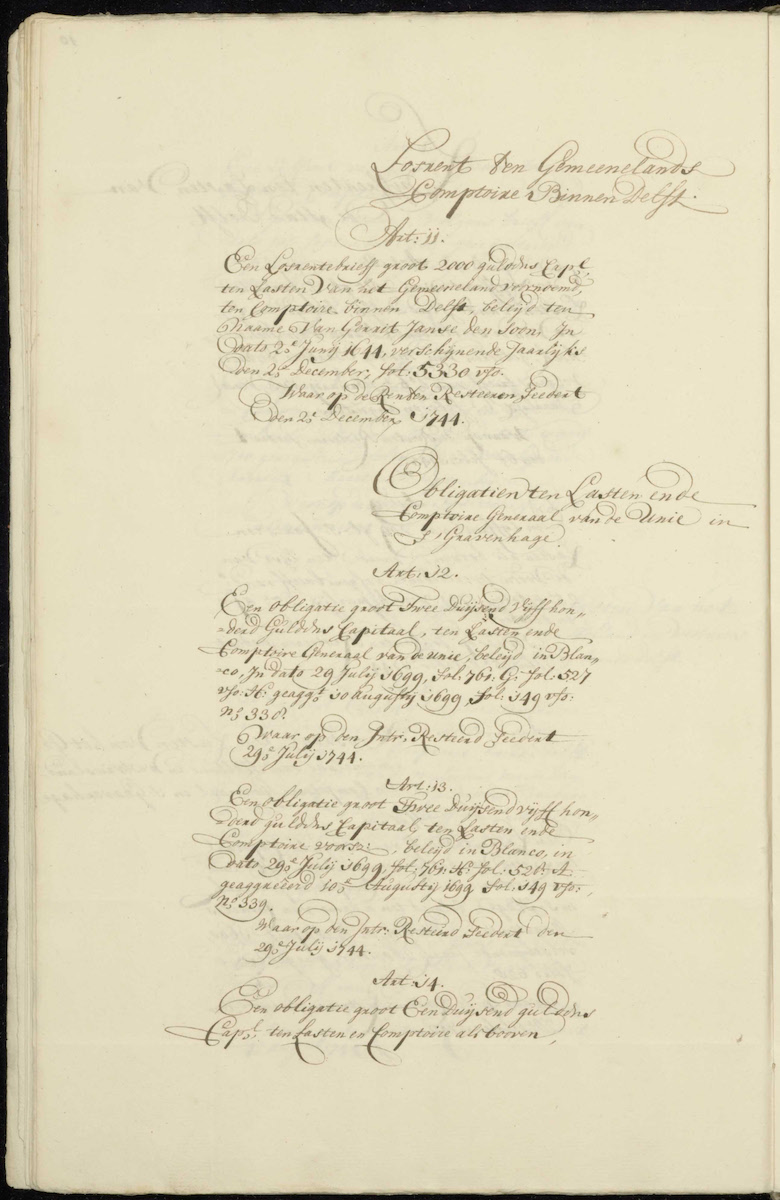 Losrent ten Gemeenelands
Comptoire Binnen Delft.
Art: 11.
Een Losrentebrieff groot 2000 guldens Capl:
ten Lasten Van het Gemeeneland voornoemd,
ten Comptoire binnen Delft, beleijd ten
Naame Van Gerrit Janse den Soen, In
dato 2e Junij 1644, verschijnende Jaarlijks
den 2e December, fol: 5330 vso.
Waar op de Renten Resteeren Zeedert
den 2e December 1744.
Obligatien ten Lasten ende
Comptoire Generaal van de Unie in
s'Gravenhage.
Art: 12.
Een obligatie groot Twee Duijsend Vijff hon„
„derd Guldens Capitaal, ten Lasten ende
Comptoire Generaal van de Unie, beleijd in Blan„
„co, In dato 29 Julij 1699, fol: 761: G: fol: 527
vso: H: geaggt 10 augustij 1699, fol: 149 vso:
No 338.
Waar op den Intr: Resteerd Zeedert
29e Julij 1744.
Art: 13.
Een obligatie groot Twee Duijsend vijff hon„
„derd guldens Capitaal, ten Lasten ende
Comptoire voorsz:, beleijd in Blanco, in
dato 29e Julij 1699, fol: 761: H: fol: 528: A
geaggreerd 10e Augustij 1699 fol: 149 vso:,
No 339.
Waar op den Intr: Resteerd Zeedert den
29e Julij 1744.
Art: 14.
Een obligatie groot Een Duijsend guldens
Capl: ten Lasten en Comptoire als booven,